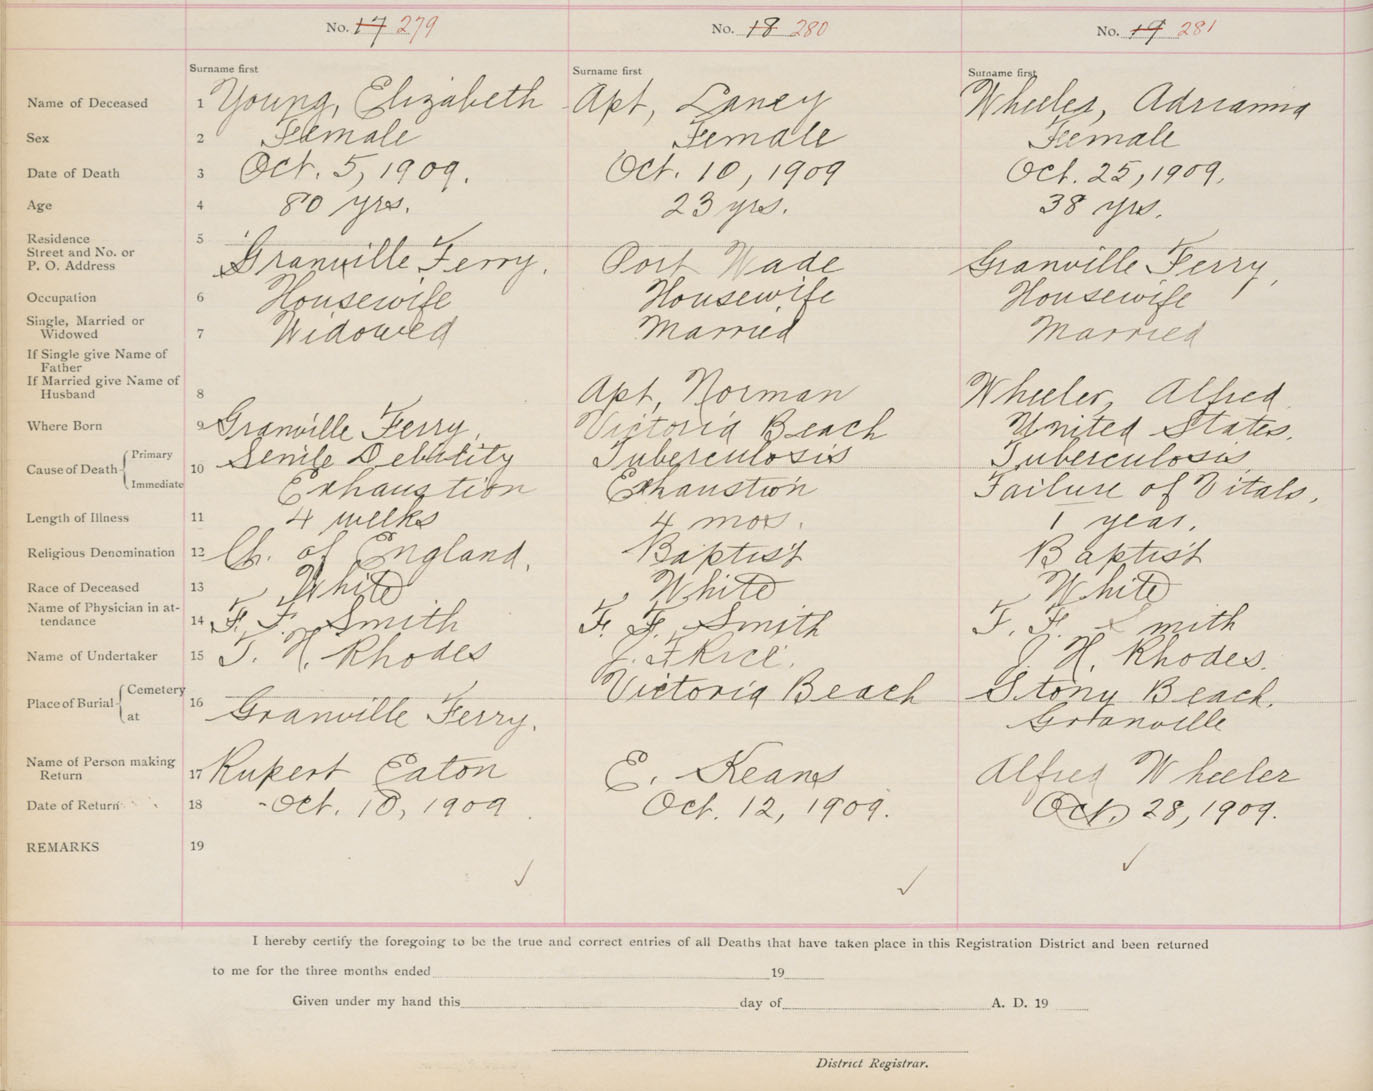 No. 17 279 No. 18 280 No. 19 281
Surname first Surname first Surname first
Name of Deceased 1 Young, Elizabeth Apt, Laney Wheeler, Adrianna
Sex 2 Female Female Female
Date of Death 3 Oct. 5, 1909. Oct. 10, 1909 Oct. 25, 1909.
Age 4 80 yrs. 23 yrs. 38 yrs.
Residence 5
Street and No. or
P. O. Address Granville Ferry. Port Wade Granville Ferry,
Occupation 6 Housewife Housewife Housewife
Single, Married or
Widowed 7 Widowed Married Married
If Single give Name of
Father
If Married give Name of
Husband 8 Apt, Norman Wheeler, Alfred
Where Born 9 Granville Ferry, Victoria Beach United States.
Cause of Death Primary 10 Senile Debility Tuberculosis Tuberculosis
Immediate Exhaustion Exhaustion Failure of Vitals,
Length of Illness 11 4 weeks 4 mos. 1 year.
Religious Denomination 12 Ch. of England, Baptist Baptist
Race of Deceased 13 White White White
Name of Physician in at-
tendance 14 F. F. Smith F. F. Smith F. F. Smith
Name of Undertaker 15 J. H. Rhodes J. F. Rice. J. H. Rhodes.
Place of Burial Cemetery 16 Victoria Beach Stony Beach,
at Granville Ferry. Granville
Name of Person making
Return 17 Rupert Eaton E. Keans Alfred Wheeler
Date of Return 18 Oct. 10, 1909 Oct. 12, 1909. Oct. 28, 1909.
REMARKS 19
I hereby certify the foregoing to be the true and correct entries of all Deaths that have taken place in this Registration District and been returned
to me for the three months ended 19
Given under my hand this day of A. D. 19
District Registrar.